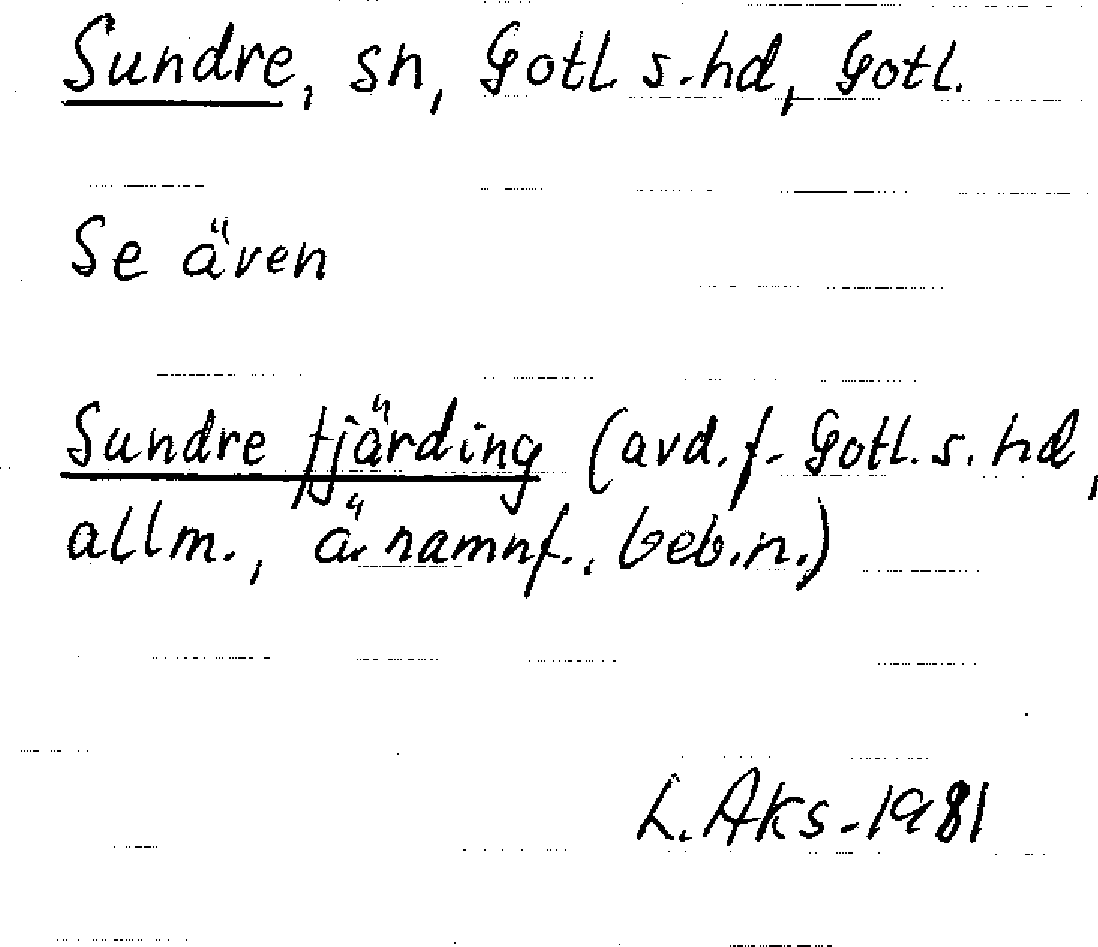 Sundre, sn, Gotl s.hd, Gotl.
Se även
Sundre fjärding (avd. f. Gotl. s. hd,
allm., ä. namnf., beb.n.)
L. Aks-1981